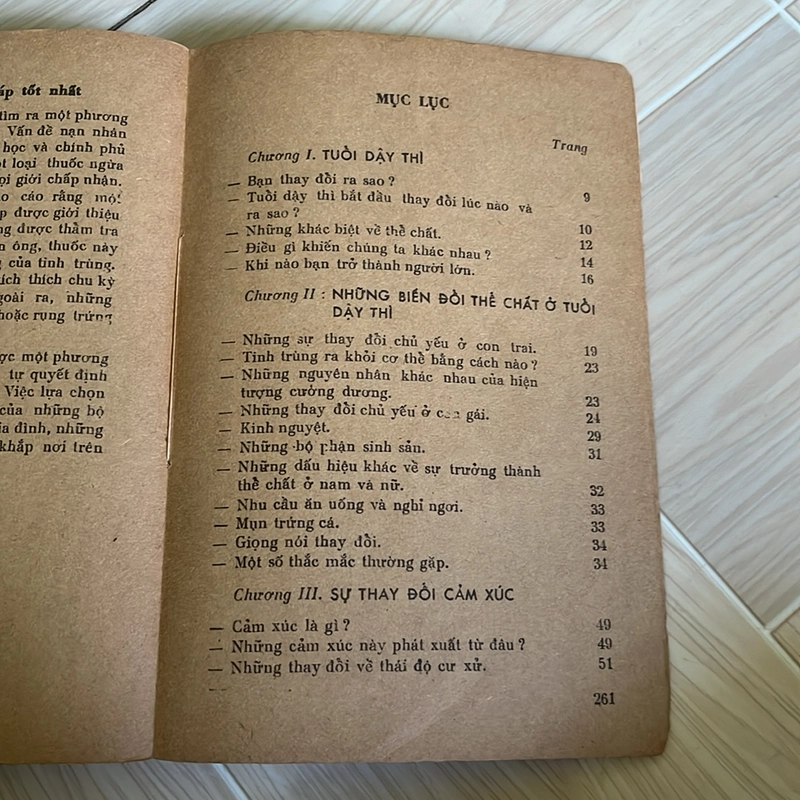 áp tốt nhất
tìm ra một phương
Vấn đề nạn nhân
học và chính phủ
một loại thuốc ngừa
giới chấp nhận.
cáo rằng một
được giới thiệu
được thẩm tra
ông, thuốc này
của tinh trùng.
thích chu kỳ
ra, những
hoặc rụng trứng
một phương
tự quyết định
Việc lựa chọn
của những bộ
đình, những
khắp nơi trên
MỤC LỤC
Trang
Chương I. TUỔI DẬY THÌ
— Bạn thay đổi ra sao ? 9
— Tuổi dậy thì bắt đầu thay đổi lúc nào và
ra sao ? 10
— Những khác biệt về thể chất. 12
— Điều gì khiến chúng ta khác nhau ? 14
— Khi nào bạn trở thành người lớn. 16
Chương II : NHỮNG BIẾN ĐỔI THỂ CHẤT Ở TUỔI
DẬY THÌ
— Những sự thay đổi chủ yếu ở con trai. 19
— Tinh trùng ra khỏi cơ thể bằng cách nào ? 23
— Những nguyên nhân khác nhau của hiện
tượng cường dương. 23
— Những thay đổi chủ yếu ở con gái. 24
— Kinh nguyệt. 29
— Những bộ phận sinh sản. 31
— Những dấu hiệu khác về sự trưởng thành
thể chất ở nam và nữ. 32
— Nhu cầu ăn uống và nghỉ ngơi. 33
— Mụn trứng cá. 33
— Giọng nói thay đổi. 34
— Một số thắc mắc thường gặp. 34
Chương III. SỰ THAY ĐỔI CẢM XÚC
— Cảm xúc là gì ? 49
— Những cảm xúc này phát xuất từ đâu ? 49
— Những thay đổi về thái độ cư xử. 51
261